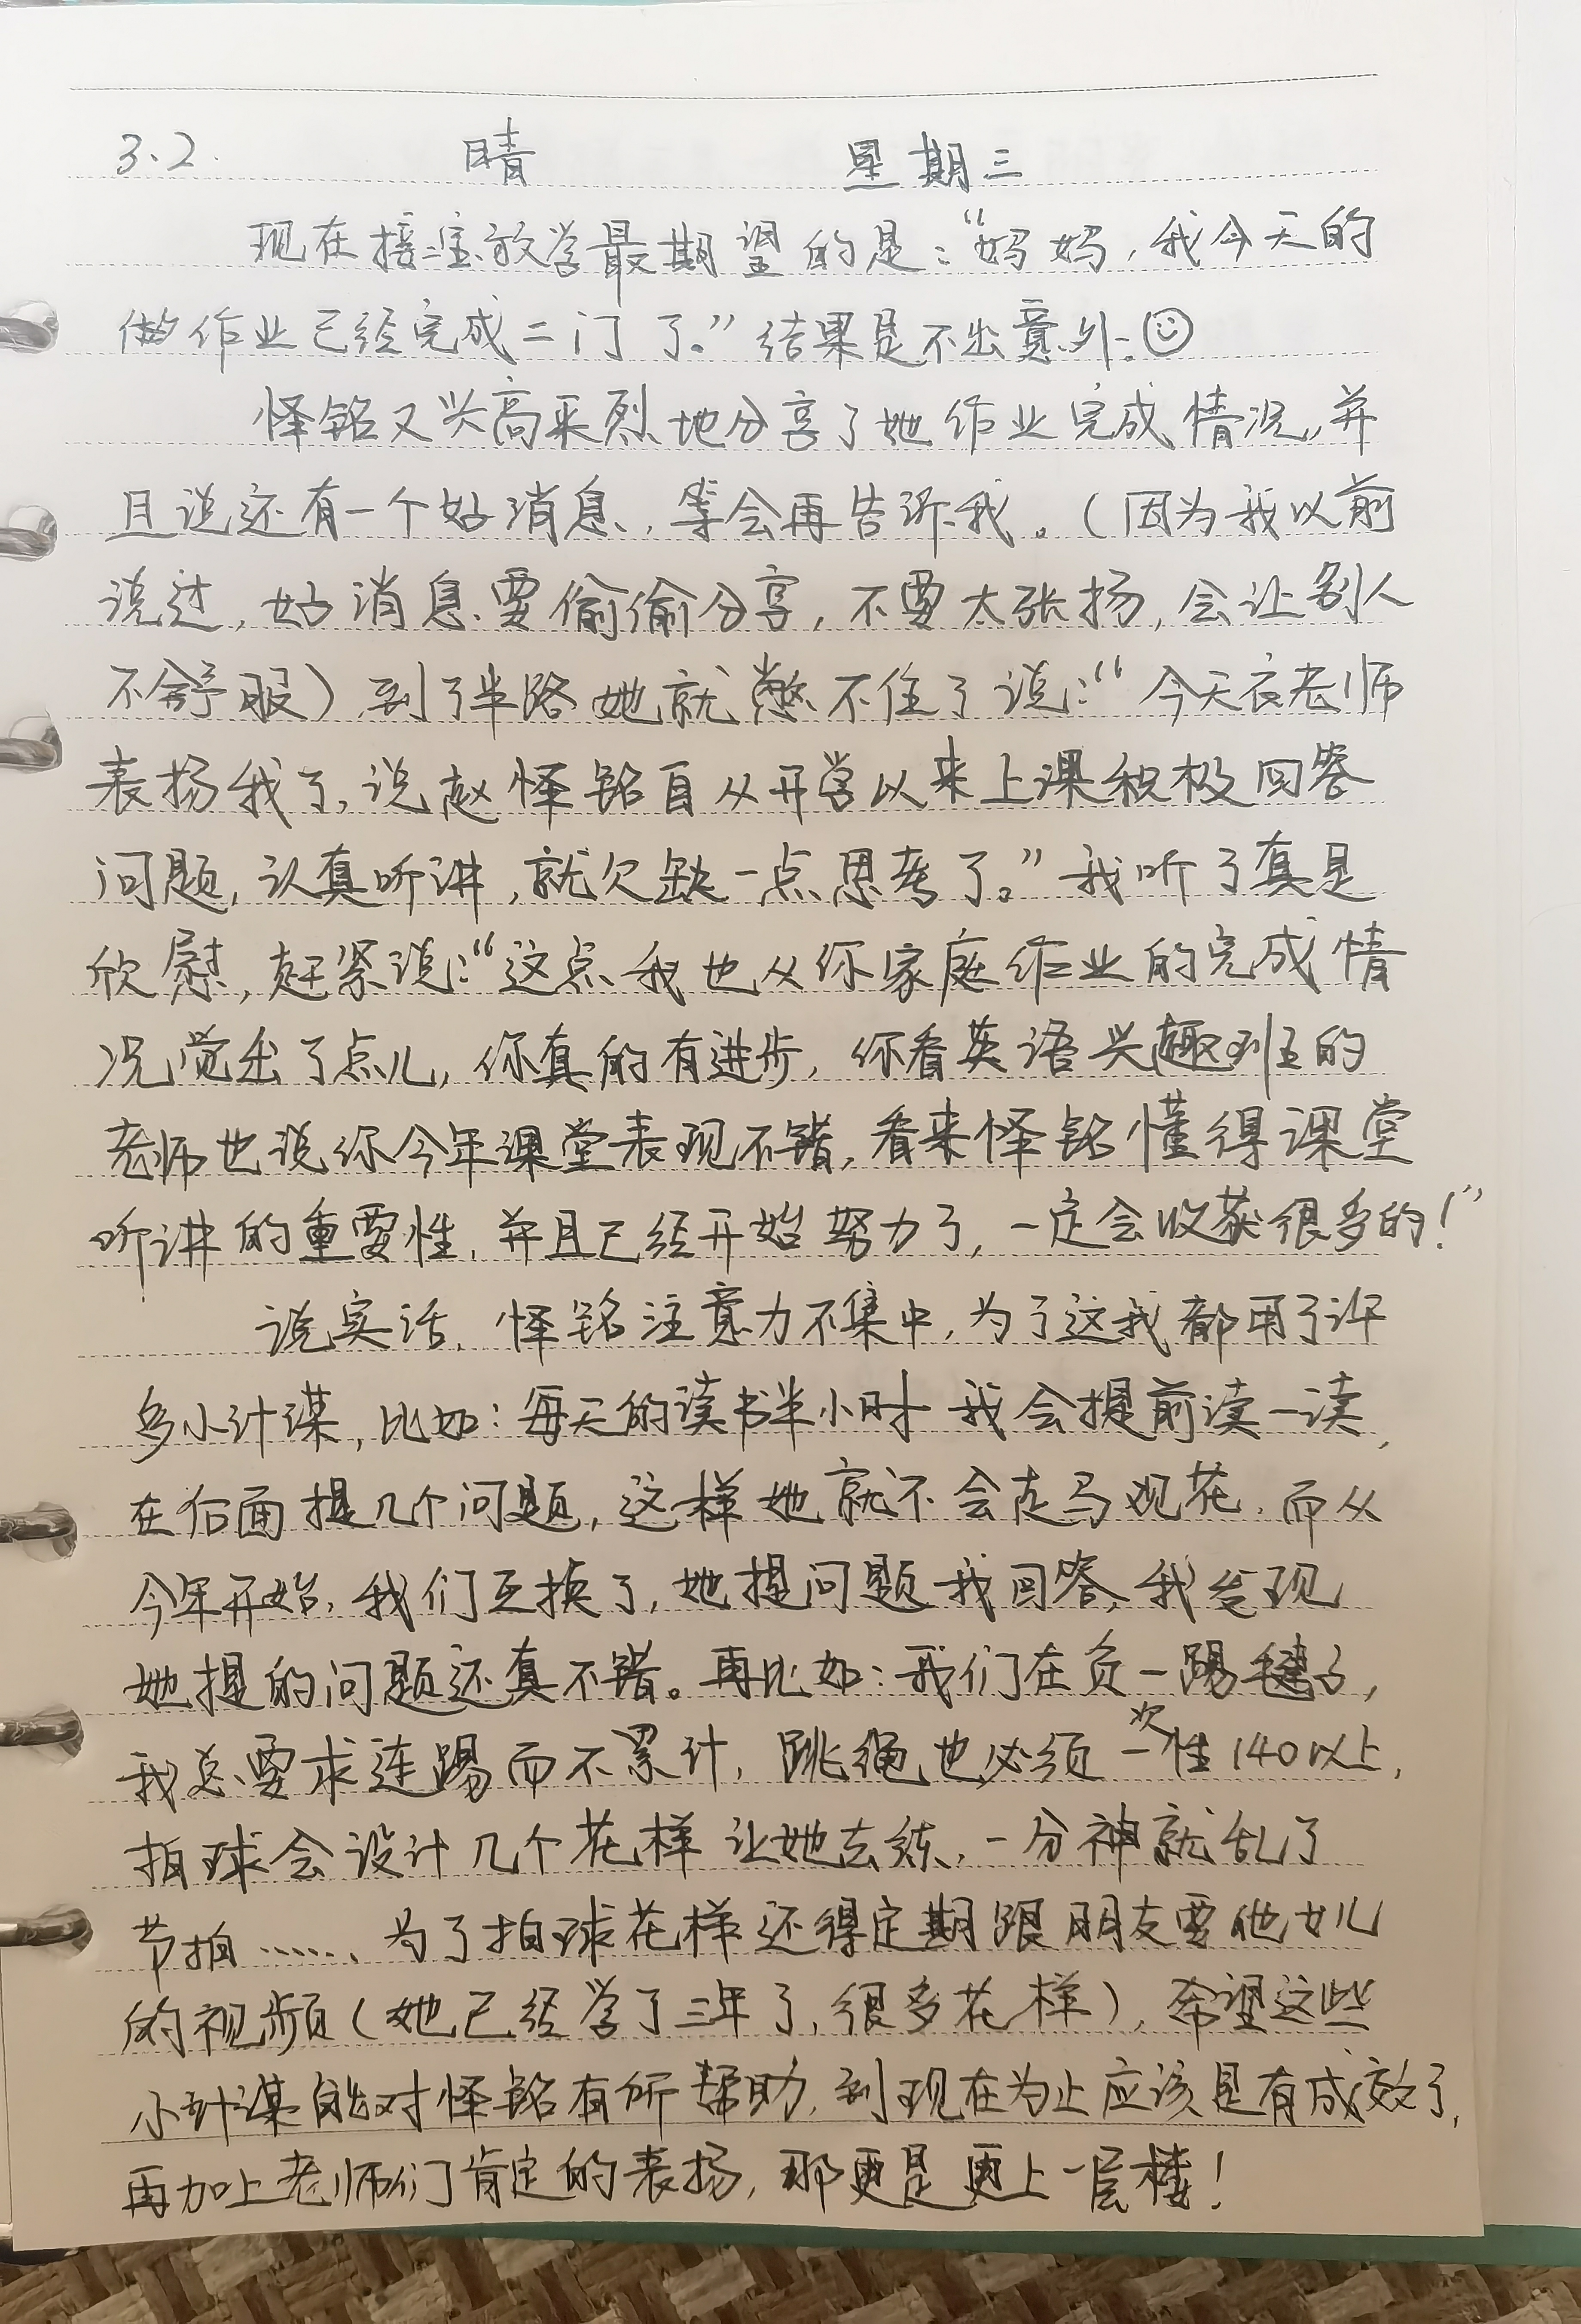 3.2. 晴 星期三
现在接宝放学最期望的是：“妈妈，我今天的
做作业已经完成二门了。”结果是不出意外.
怿铭又兴高采烈地分享了她作业完成情况,并
且说还有一个好消息，等会再告诉我。（因为我以前
说过，好消息要偷偷分享，不要太张扬，会让别人
不舒服）到了半路她就憋不住了说：“今天袁老师
表扬我了，说赵怿铭自从开学以来上课积极回答
问题，认真听讲，就欠缺一点思考了。”我听了真是
欣慰，赶紧说：“这点我也从你家庭作业的完成情
况觉出了点儿，你真的有进步，你看英语兴趣班的
老师也说你今年课堂表现不错，看来怿铭懂得课堂
听讲的重要性，并且已经开始努力了，一定会收获很多的！”
说实话，怿铭注意力不集中，为了这我都用了许
多小计谋，比如：每天的读书半小时 我会提前读一读，
在后面提几个问题，这样她就不会走马观花，而从
今年开始，我们互换了，她提问题我回答，我发现
她提的问题还真不错。再比如：我们在负一踢毽子，
我总要求连踢而不累计，跳绳也必须一次性140以上，
拍球会设计几个花样让她去练，一分神就乱了
节拍……、为了拍球花样还得定期跟朋友要他女儿
的视频（她已经学了三年了，很多花样），希望这些
小计谋能对怿铭有所帮助，到现在为止应该是有成效了，
再加上老师们肯定的表扬，那更是更上一层楼！